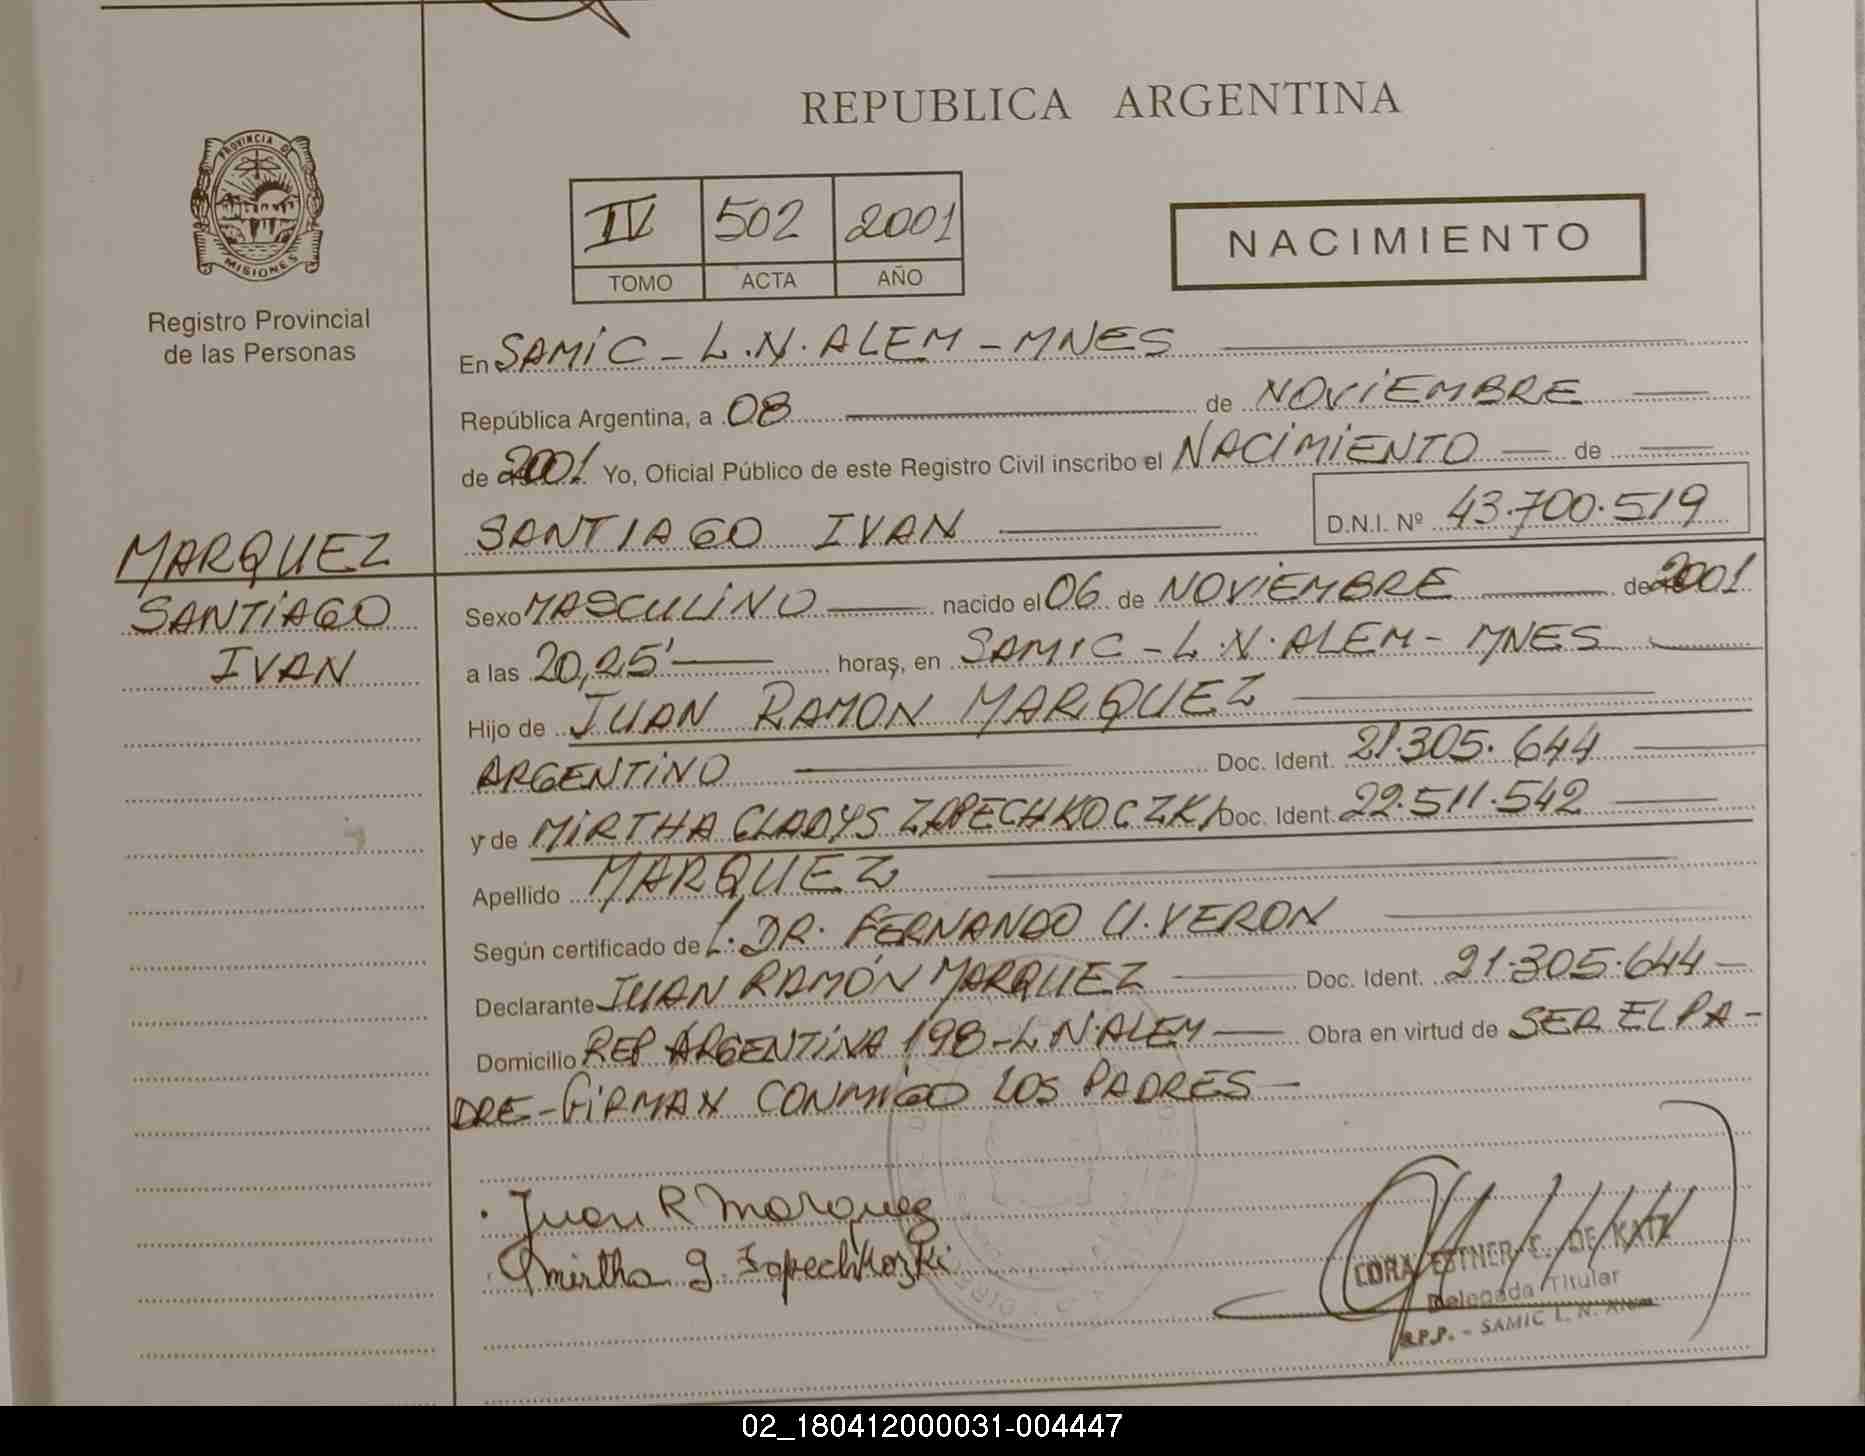 REPUBLICA ARGENTINA
PROVINCIA DE
MISIONES
Registro Provincial
de las Personas
IV 502 2001
TOMO ACTA AÑO
NACIMIENTO
En SAMIC - L.N. ALEM - MNES
República Argentina, a 08 de NOVIEMBRE
de 2001 Yo, Oficial Público de este Registro Civil inscribo el NACIMIENTO de
SANTIAGO IVAN D.N.I. Nº 43.700.519
MARQUEZ
SANTIAGO
IVAN
Sexo MASCULINO nacido el 06 de NOVIEMBRE de 2001
a las 20,25' horas, en SAMIC - L.N. ALEM - MNES
Hijo de JUAN RAMON MARQUEZ
ARGENTINO Doc. Ident. 21.305.644
y de MIRTHA GLADYS ZAPECHKOCZKI Doc. Ident. 22.511.542
Apellido MARQUEZ
Según certificado de L. DR. FERNANDO U. VERON
Declarante JUAN RAMÓN MARQUEZ Doc. Ident. 21.305.644 -
Domicilio REP ARGENTINA 198 - L N. ALEM Obra en virtud de SER EL PA-
DRE - FIRMAN CONMIGO LOS PADRES -
Juan R Marquez
Mirtha G. Zapechkozki
CORA ESTHER C. DE KATZ
Delegada Titular
R.P.P. - SAMIC L. N. Alem
02_180412000031-004447